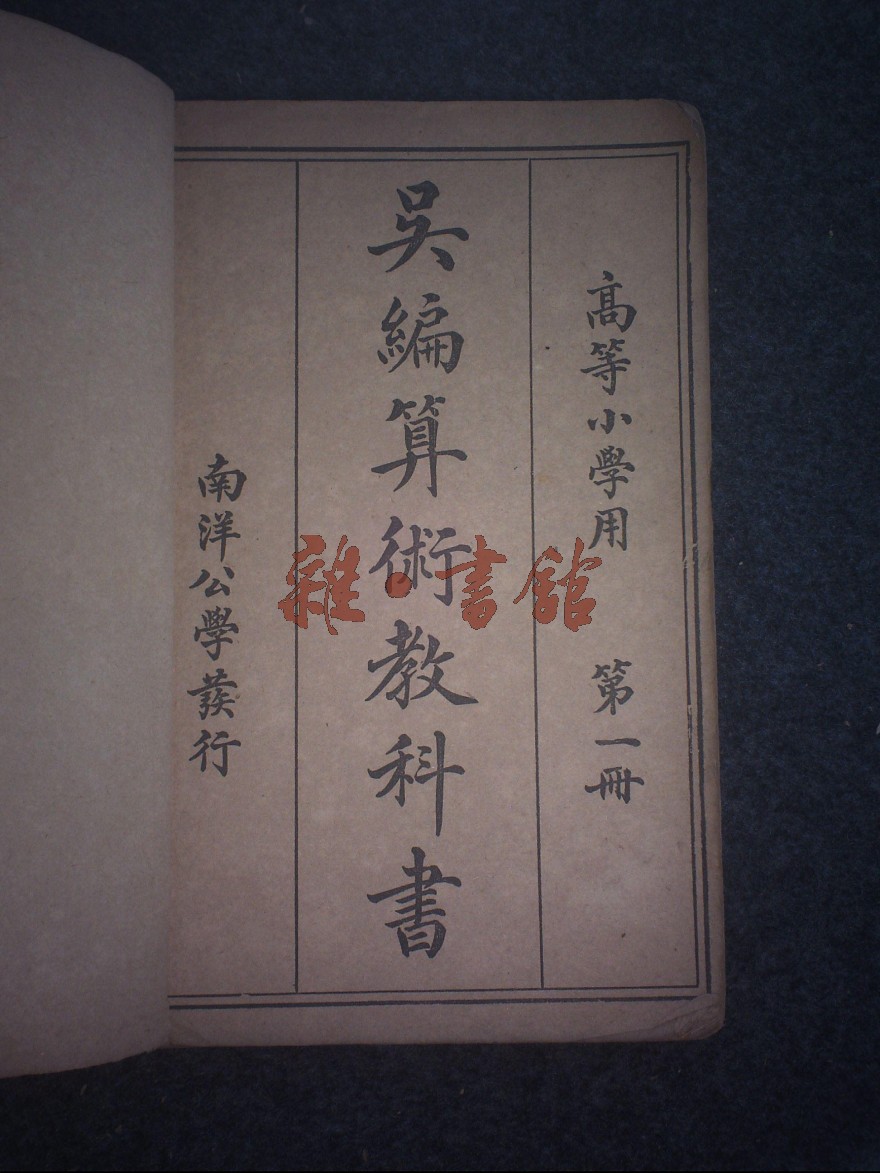 高等小學用 第一冊
吳編算術教科書
南洋公學發行
雜·書館